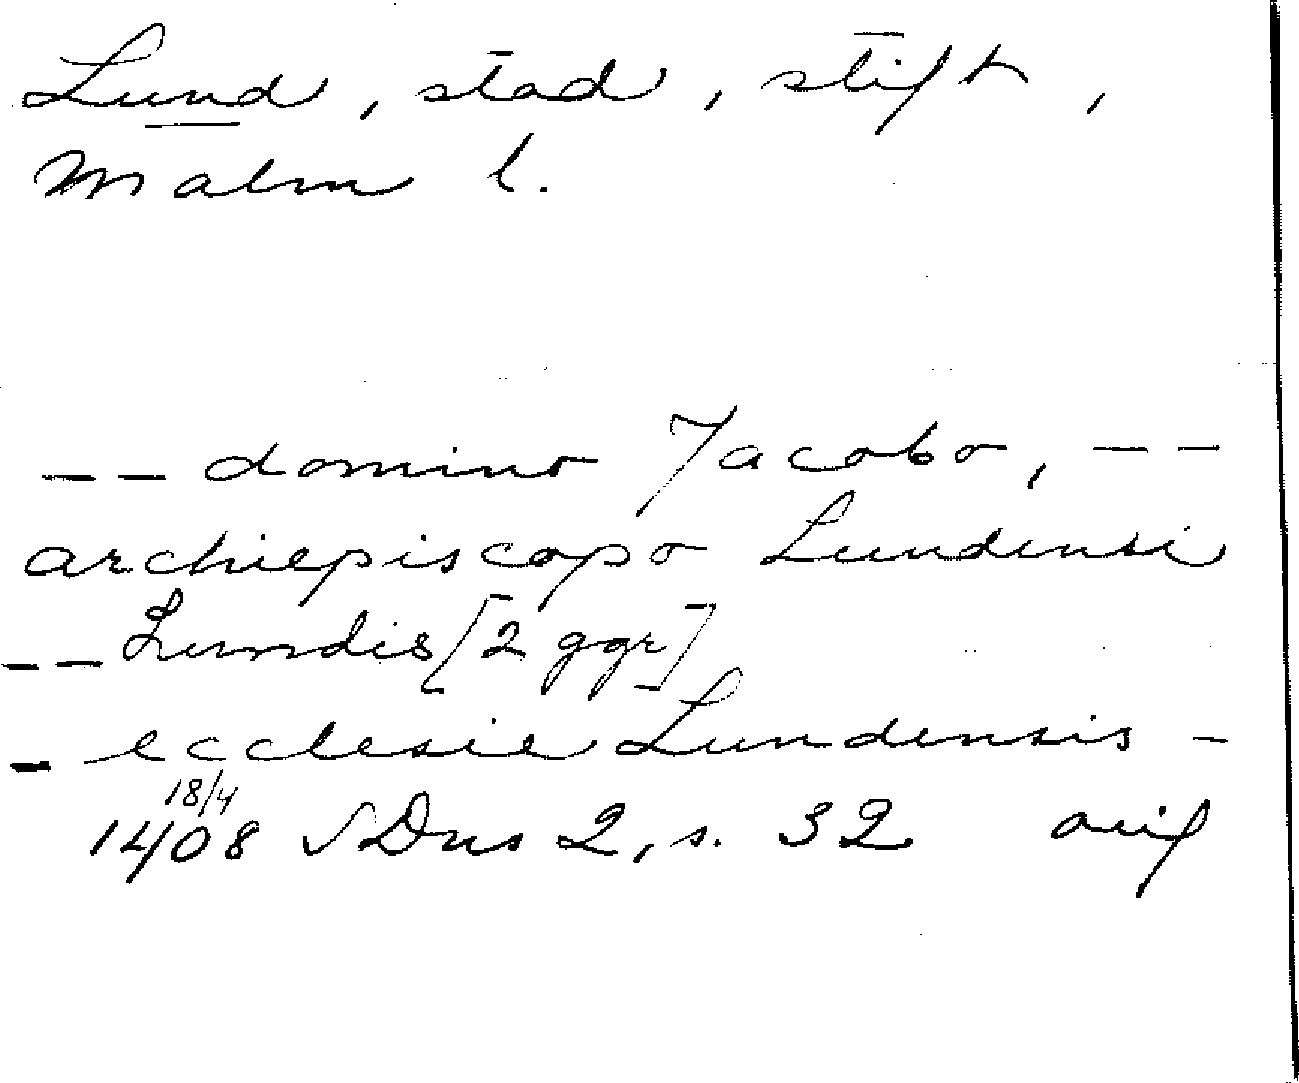 Lund, stad, stift,
Malm l.
-- domino Jacobo, --
archiepiscopo Lundensi
-- Lundis [2 ggr]
- ecclesie Lundensis -
18/4
1408 SDns 2, s. 32 avs